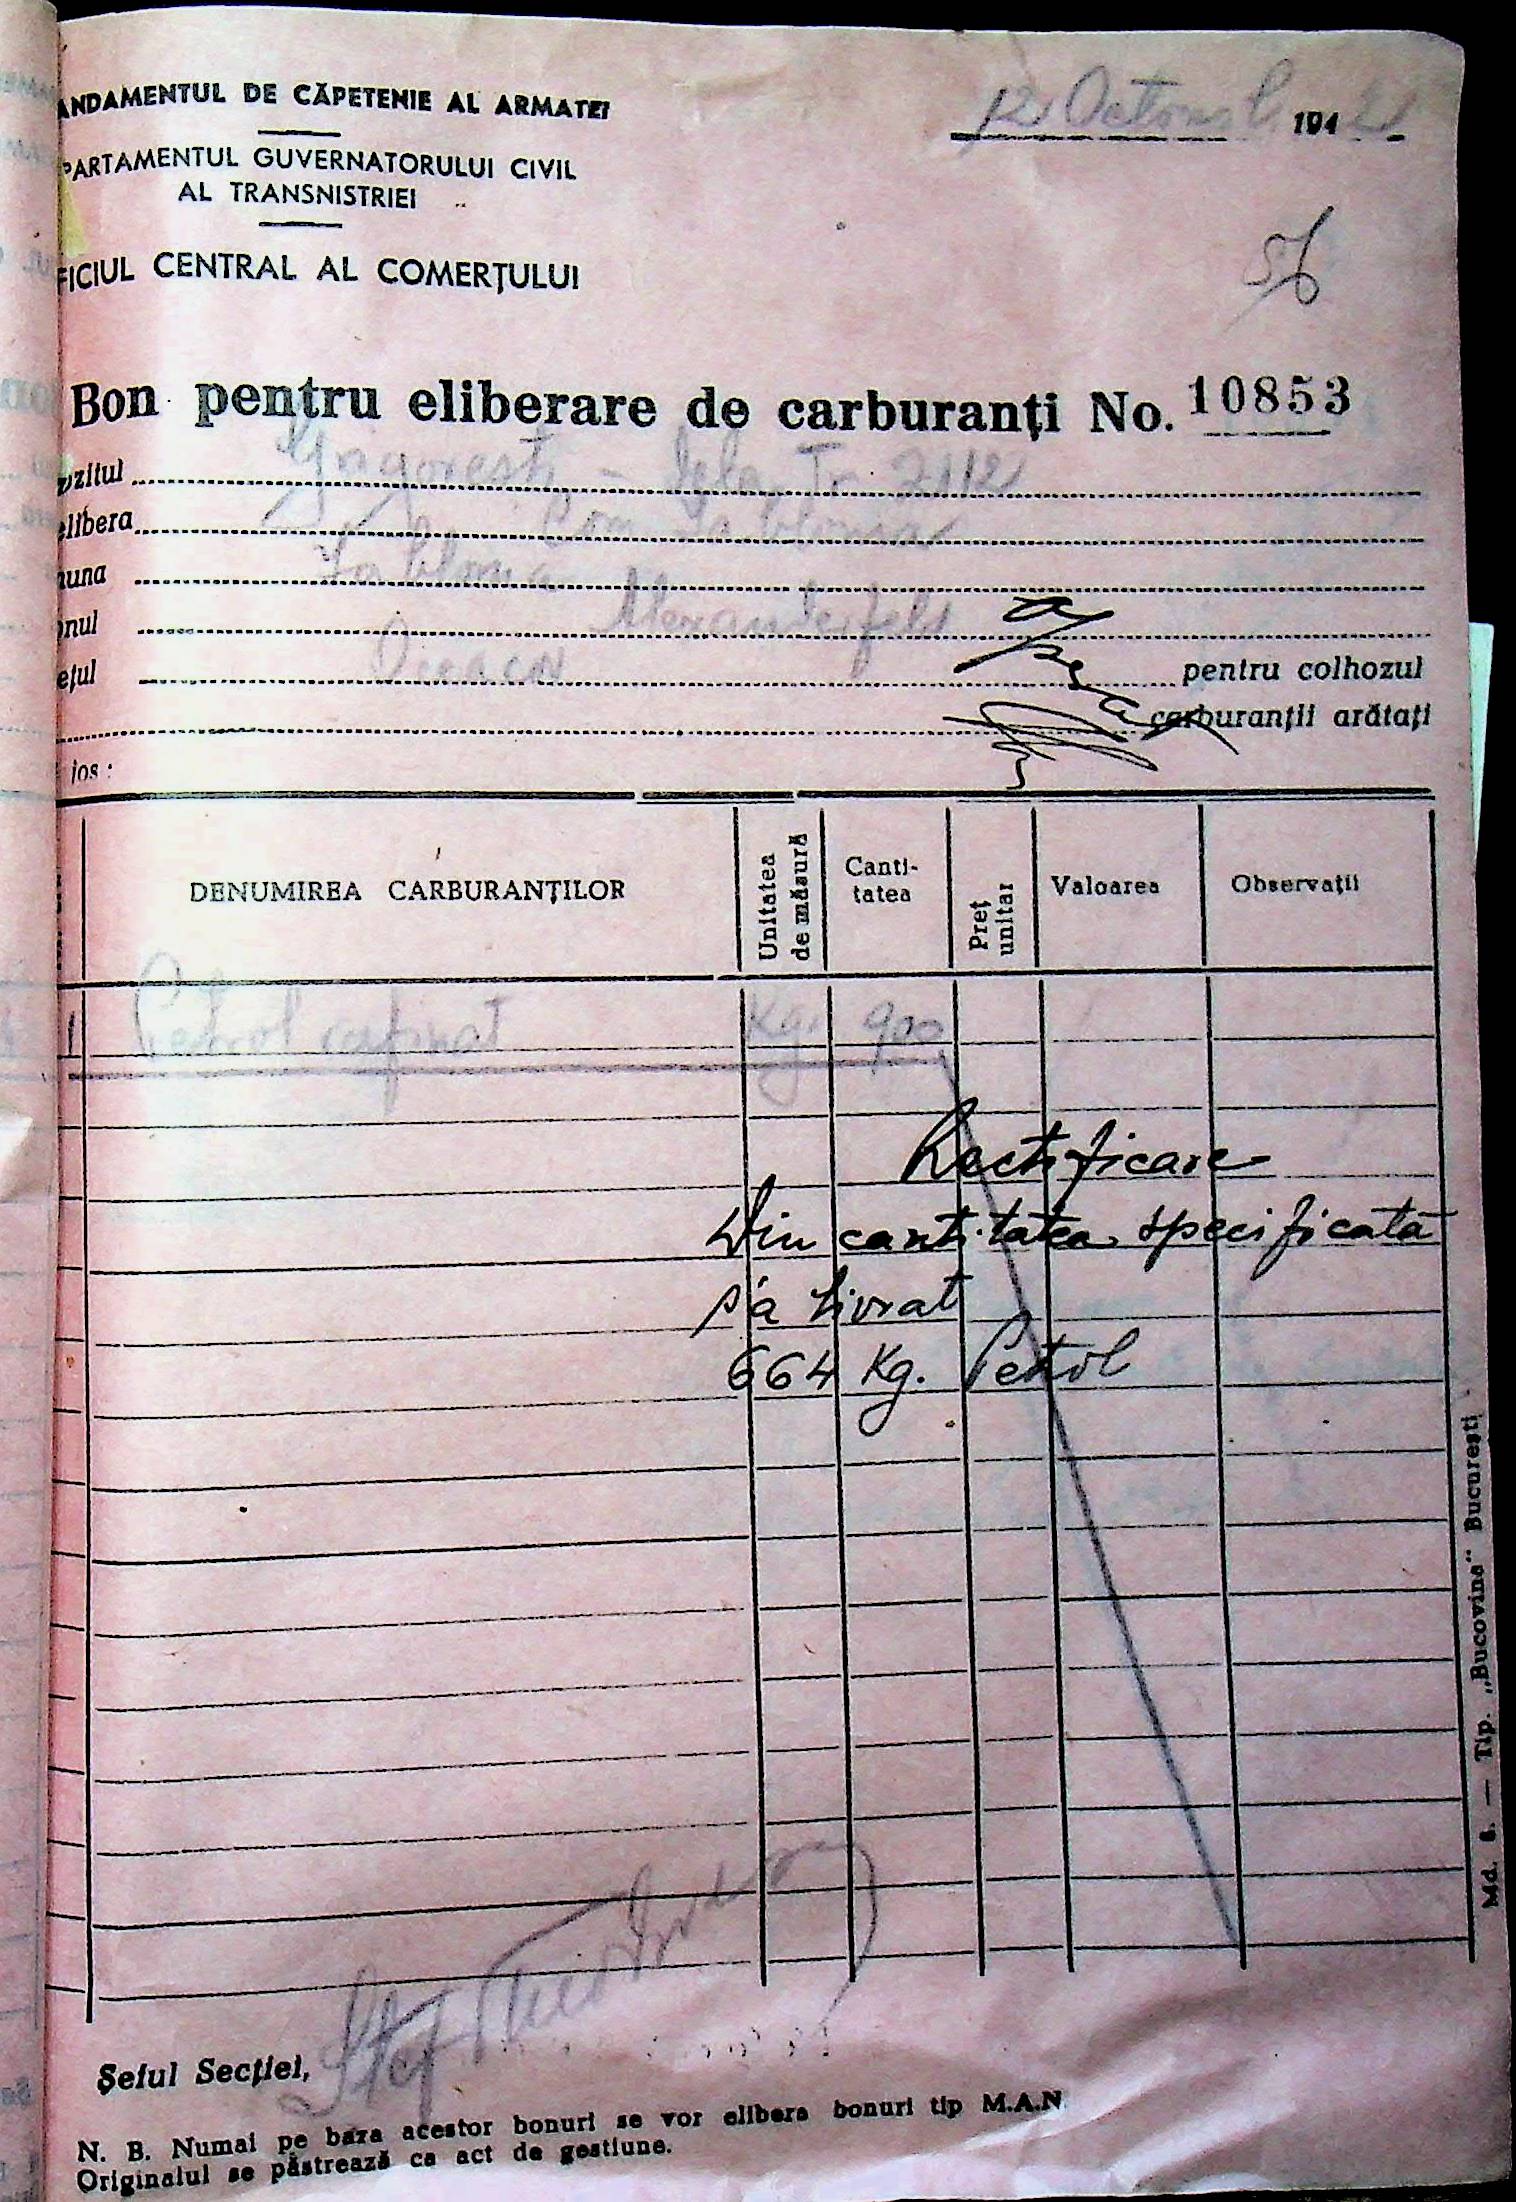 ANDAMENTUL DE CĂPETENIE AL ARMATEI
12 Octombrie 194
PARTAMENTUL GUVERNATORULUI CIVIL
AL TRANSNISTRIEI
FICIUL CENTRAL AL COMERȚULUI
56
Bon pentru eliberare de carburanți No. 10853
ozitul Grigorești
elibera Com.
muna
onul Alexanderfeld
ețul pentru colhozul
carburanții arătați
jos :
DENUMIREA CARBURANȚILOR
Unitatea de măsură
Canti-
tatea
Preț unitar
Valoarea
Observații
1 Petrol rafinat Kg. 900
Rectificare
Din cantitatea specificată
s'a livrat
664 Kg. Petrol
Md. 8. — Tip. „Bucovina" București
Șeful Secției,
N. B. Numai pe baza acestor bonuri se vor elibera bonuri tip M.A.N
Originalul se păstrează ca act de gestiune.